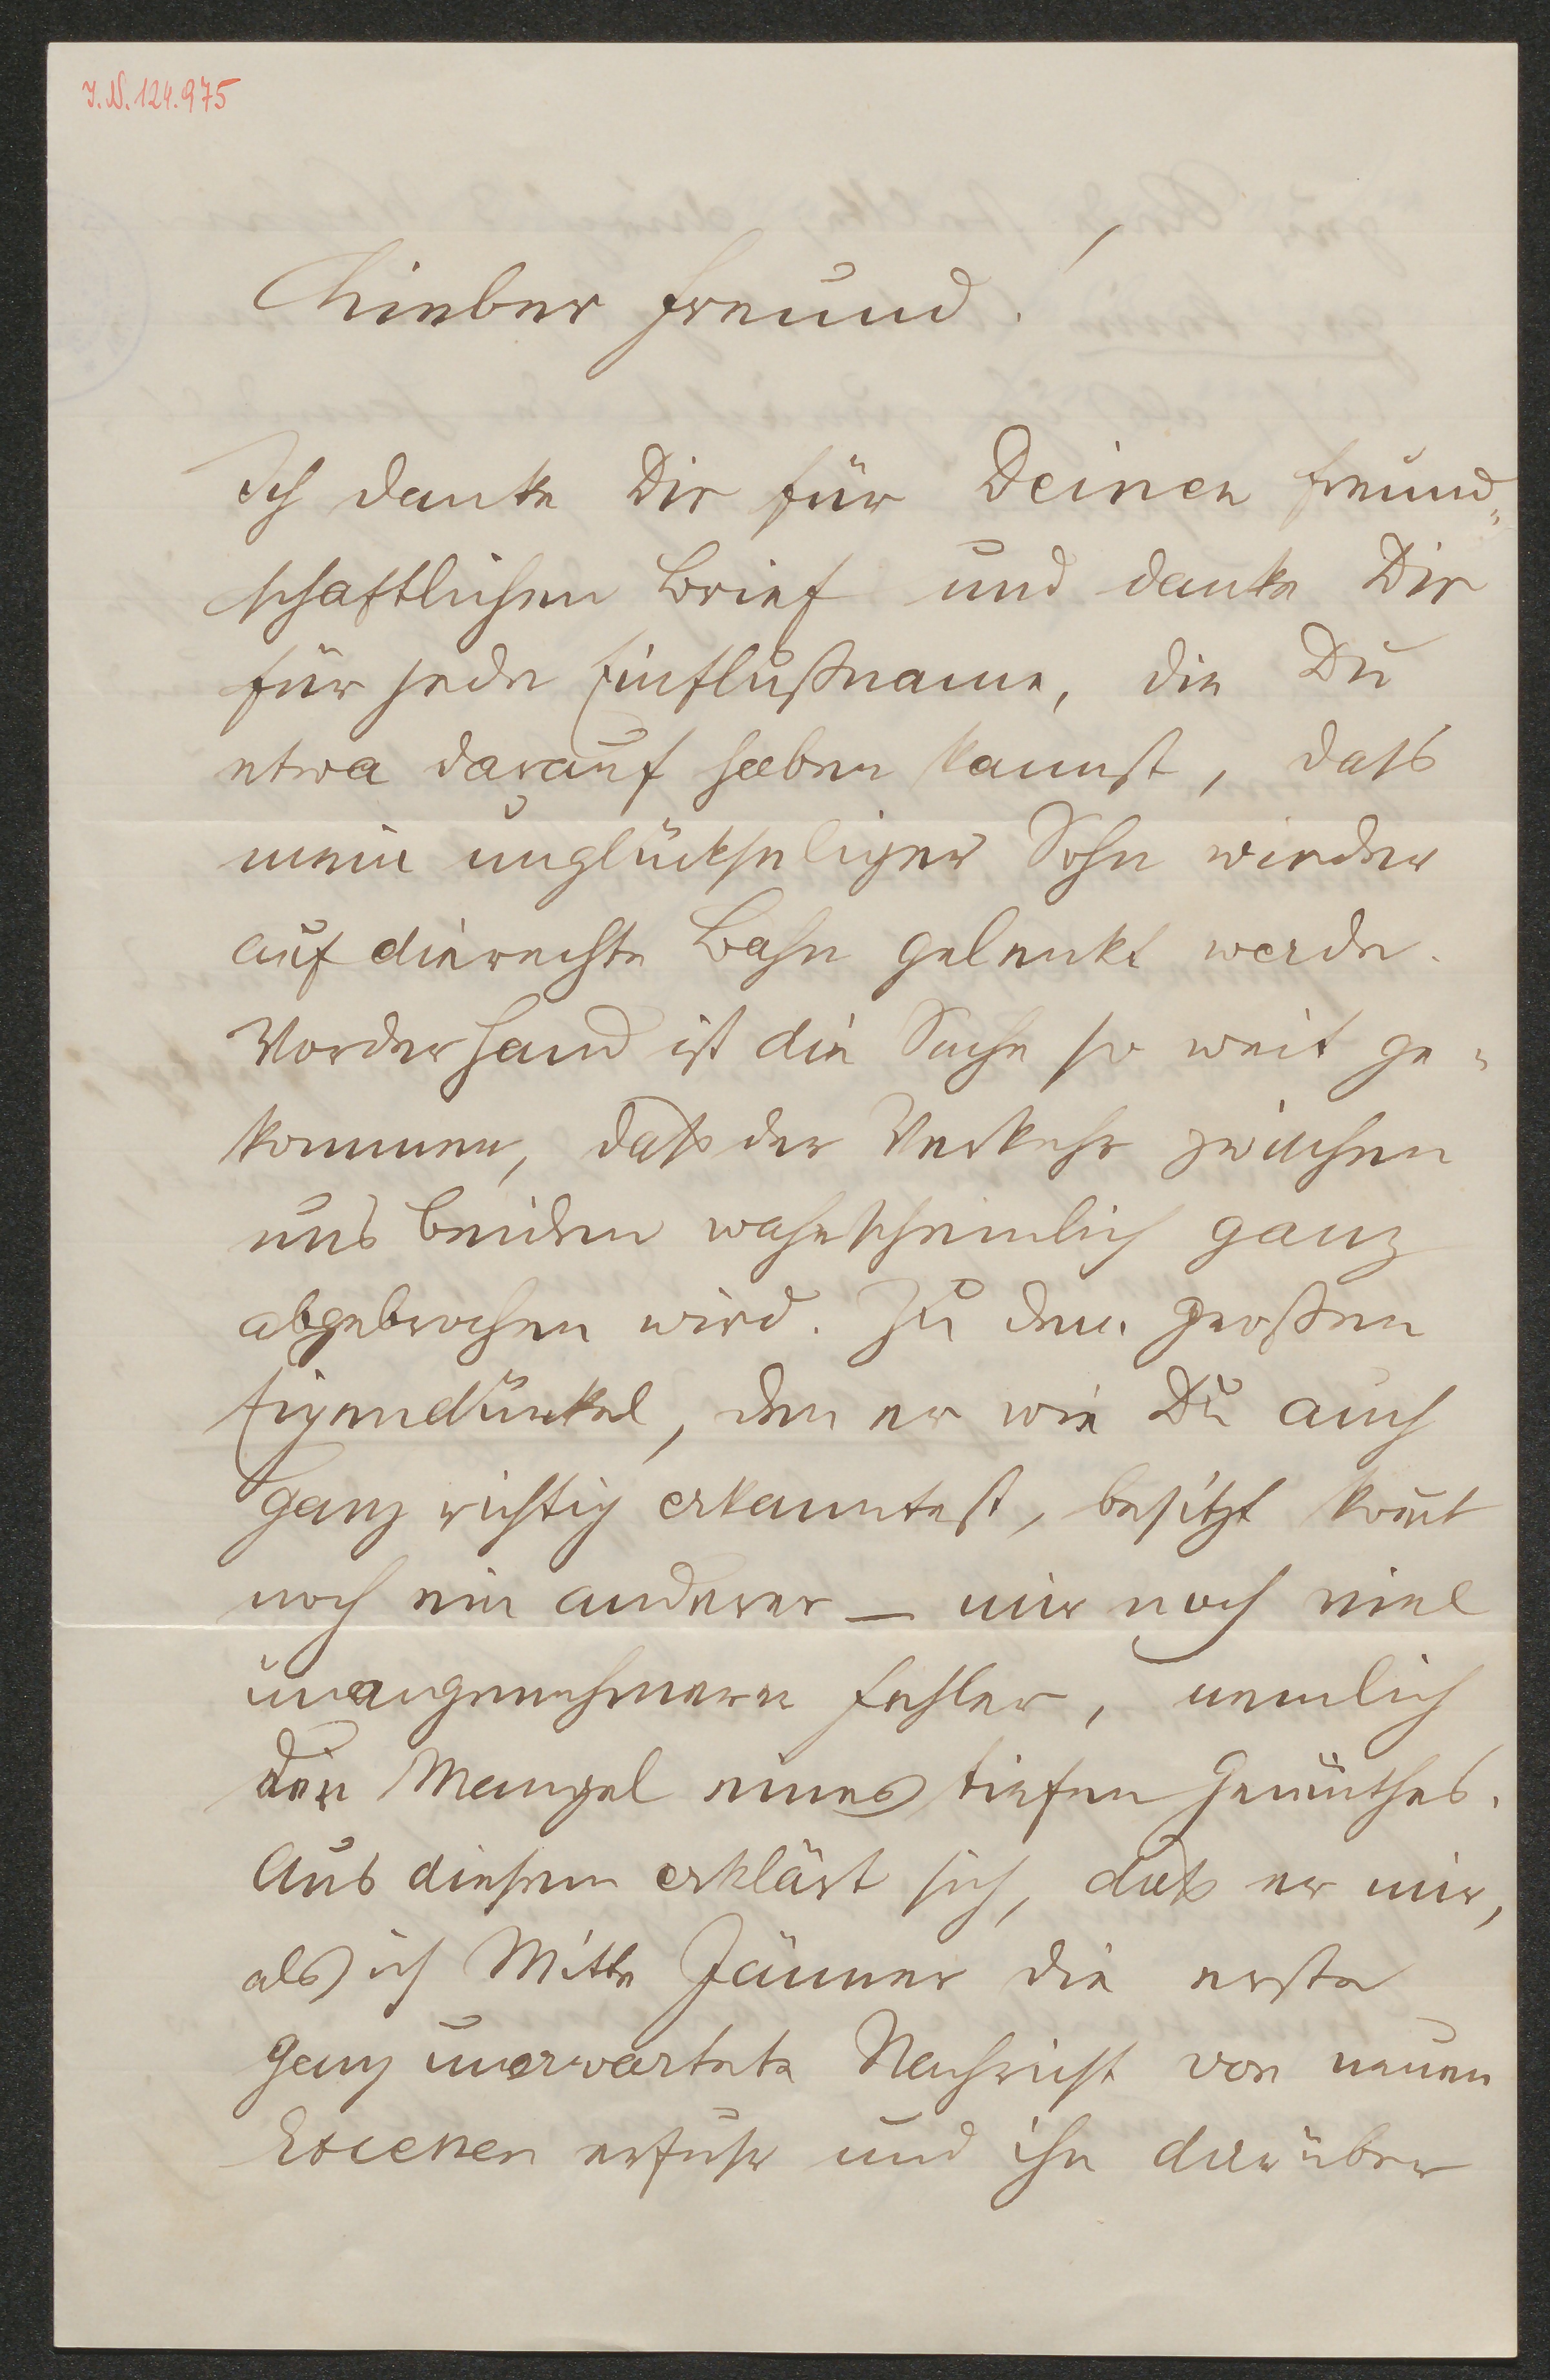 J.N. 124.975
Lieber Freund!
Ich danke Dir für Deinen freund„
schaftlichen Brief und danke Dir
für jede Einflußname, die Du
etwa darauf haben kannst, dass
mein unglückseliger Sohn wieder
auf die rechte Bahn gelenkt werde.
Vorderhand ist die Sache so weit ge„
kommen, dass der Verkehr zwischen
uns beiden wahrscheinlich ganz
abgebrochen wird. Zu dem großen
Eigendünkel, den er wie Du auch
ganz richtig erkanntest, besitzt kom̄t
noch ein anderer – mir noch viel
unangenehmerer Fehler, nemlich
der Mangel eines tiefen Gemüthes.
Aus diesem erklärt sich, dass er mir,
als ich Mitte Jänner die erste
ganz unerwartete Nachricht von neuen
erfuhr und ihn darüber